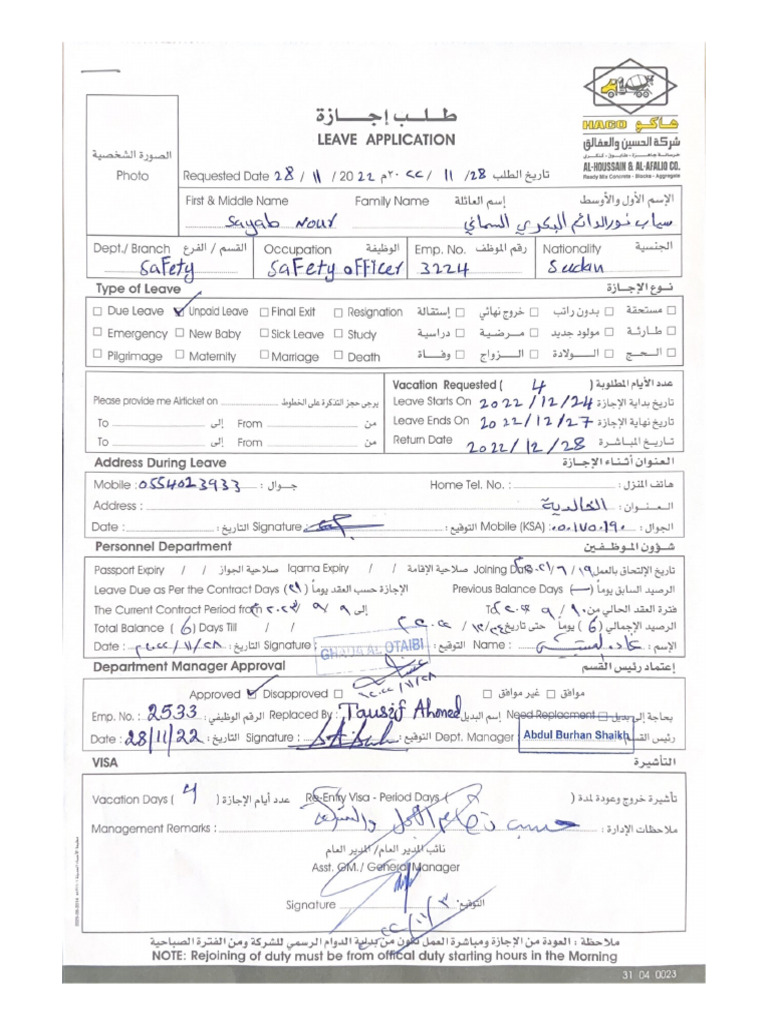 طلب إجازة
LEAVE APPLICATION
HACO هاكو
شركة الحسين والعفالق
خرسانة جاهزة - طابوق - كنكري
AL-HOUSSAIN & AL-AFALIQ CO.
Ready Mix Concrete - Blocks - Aggregate
الصورة الشخصية
Photo
Requested Date 28 / 11 / 2022 م ٢٠٢٢ / 11 / 28 تاريخ الطلب
First & Middle Name Family Name إسم العائلة الإسم الأول والأوسط
Sayab Nour سياب نور الدائم البكري السماني
Dept./ Branch القسم / الفرع Occupation الوظيفة Emp. No. رقم الموظف Nationality الجنسية
Safety Safety officer 3224 Sudan
Type of Leave نوع الإجازة
Due Leave Unpaid Leave Final Exit Resignation إستقالة خروج نهائي بدون راتب مستحقة
Emergency New Baby Sick Leave Study دراسية مرضية مولود جديد طارئة
Pilgrimage Maternity Marriage Death وفاة الزواج الولادة الحج
Vacation Requested ( 4 ) عدد الأيام المطلوبة
Please provide me Airticket on يرجى حجز التذكرة على الخطوط
Leave Starts On 2022/12/24 تاريخ بداية الإجازة
To إلى From من
Leave Ends On 2022/12/27 تاريخ نهاية الإجازة
To إلى From من
Return Date 2022/12/28 تاريخ المباشرة
Address During Leave العنوان أثناء الإجازة
Mobile : 0554023933 جوال : Home Tel. No. : هاتف المنزل :
Address : الخالدية العنوان :
Date : التاريخ : Signature التوقيع : Mobile (KSA) : الجوال :
Personnel Department شؤون الموظفين
Passport Expiry / / صلاحية الجواز Iqama Expiry / / صلاحية الإقامة Joining Date تاريخ الإلتحاق بالعمل
Leave Due as Per the Contract Days (٢١) الإجازة حسب العقد يوماً Previous Balance Days (—) الرصيد السابق يوماً
The Current Contract Period from ٢٠٢٣ / ٩ / ٩ إلى To فترة العقد الحالي من
Total Balance ( 6 ) Days Till / / الرصيد الإجمالي ( 6 ) يوماً حتى تاريخ
Date : ٢٠٢٢/١١/٢٨ التاريخ : Signature : GHALIB AL OTAIBI التوقيع : Name : الإسم :
Department Manager Approval إعتماد رئيس القسم
٢٠٢٢/١١/٢٨
Approved Disapproved غير موافق موافق
Emp. No. : 2533 الرقم الوظيفي : Replaced By : Tausif Ahmed إسم البديل Need Replacment بحاجة إلى بديل
Date : 28/11/22 التاريخ : Signature : التوقيع Dept. Manager Abdul Burhan Shaikh رئيس القسم
VISA التأشيرة
Vacation Days ( 4 ) عدد أيام الإجازة Re-Entry Visa - Period Days ( ) تأشيرة خروج وعودة لمدة
Management Remarks : حسب نظام العمل ملاحظات الإدارة :
نائب المدير العام/ المدير العام
Asst. GM./ General Manager
Signature التوقيع :
ملاحظة : العودة من الإجازة ومباشرة العمل تكون من بداية الدوام الرسمي للشركة ومن الفترة الصباحية
NOTE: Rejoining of duty must be from offical duty starting hours in the Morning
31 04 0023